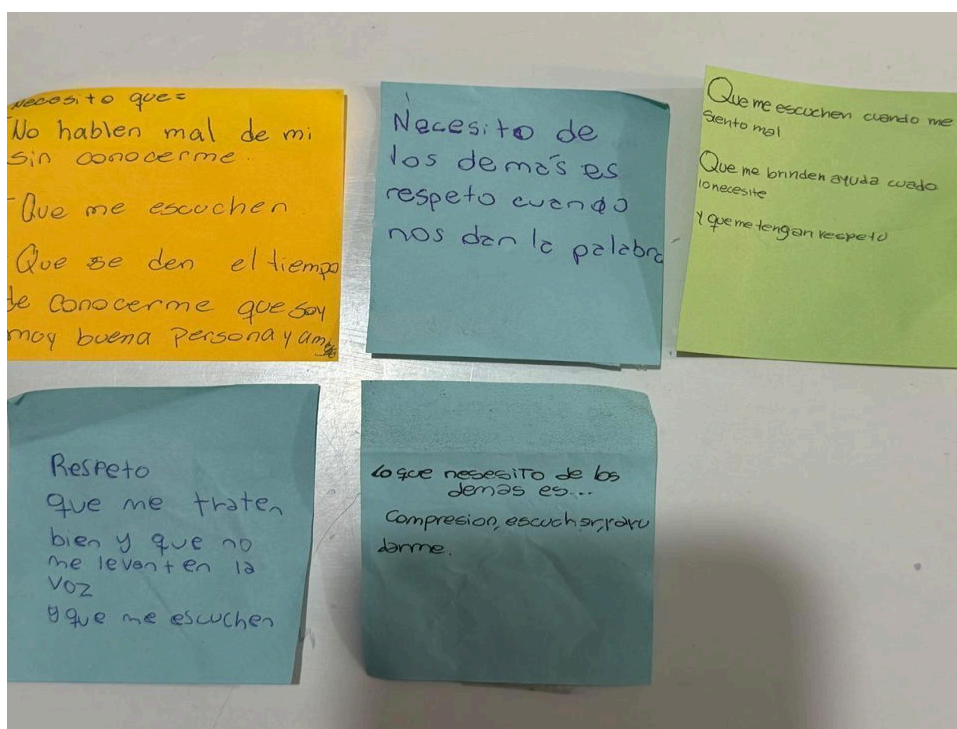 Necesito que=
No hablen mal de mi
sin conocerme.
- Que me escuchen
Que se den el tiempo
de conocerme que soy
muy buena persona y
Necesito de
los demás es
respeto cuando
nos dan la palabra
Que me escuchen cuando me
siento mal
Que me brinden ayuda cuado
lo necesite
Y que me tengan respeto
Respeto
que me traten
bien y que no
me levanten la
voz
y que me escuchen
Lo que nesesito de los
demas es...
Compresion, escuchar,